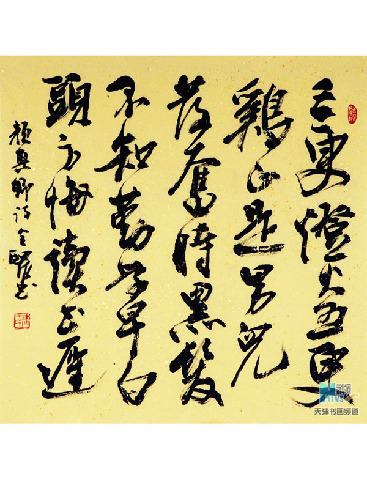 三更燈火五更
鷄正是男兒
發奮時黑髮
不知勤學早白
頭方悔讀書遲
顏真卿詩
天津书画频道